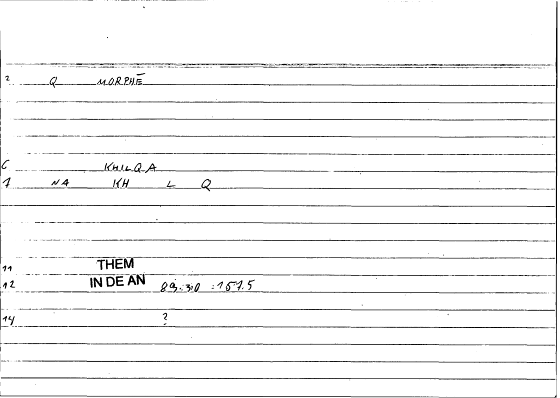 2 Q MORPHĒ
6 KHILQA
7 NA KH L Q
11 THEM
12 IN DE AN :167.5
14 ?